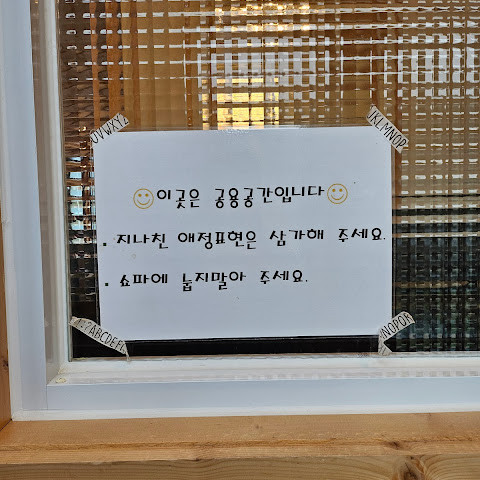 UVWXYZ
JKLMNOP
이곳은 공용공간입니다
. 지나친 애정표현은 삼가해 주세요.
. 쇼파에 눕지말아 주세요.
!?ABCDEF
NOPQR